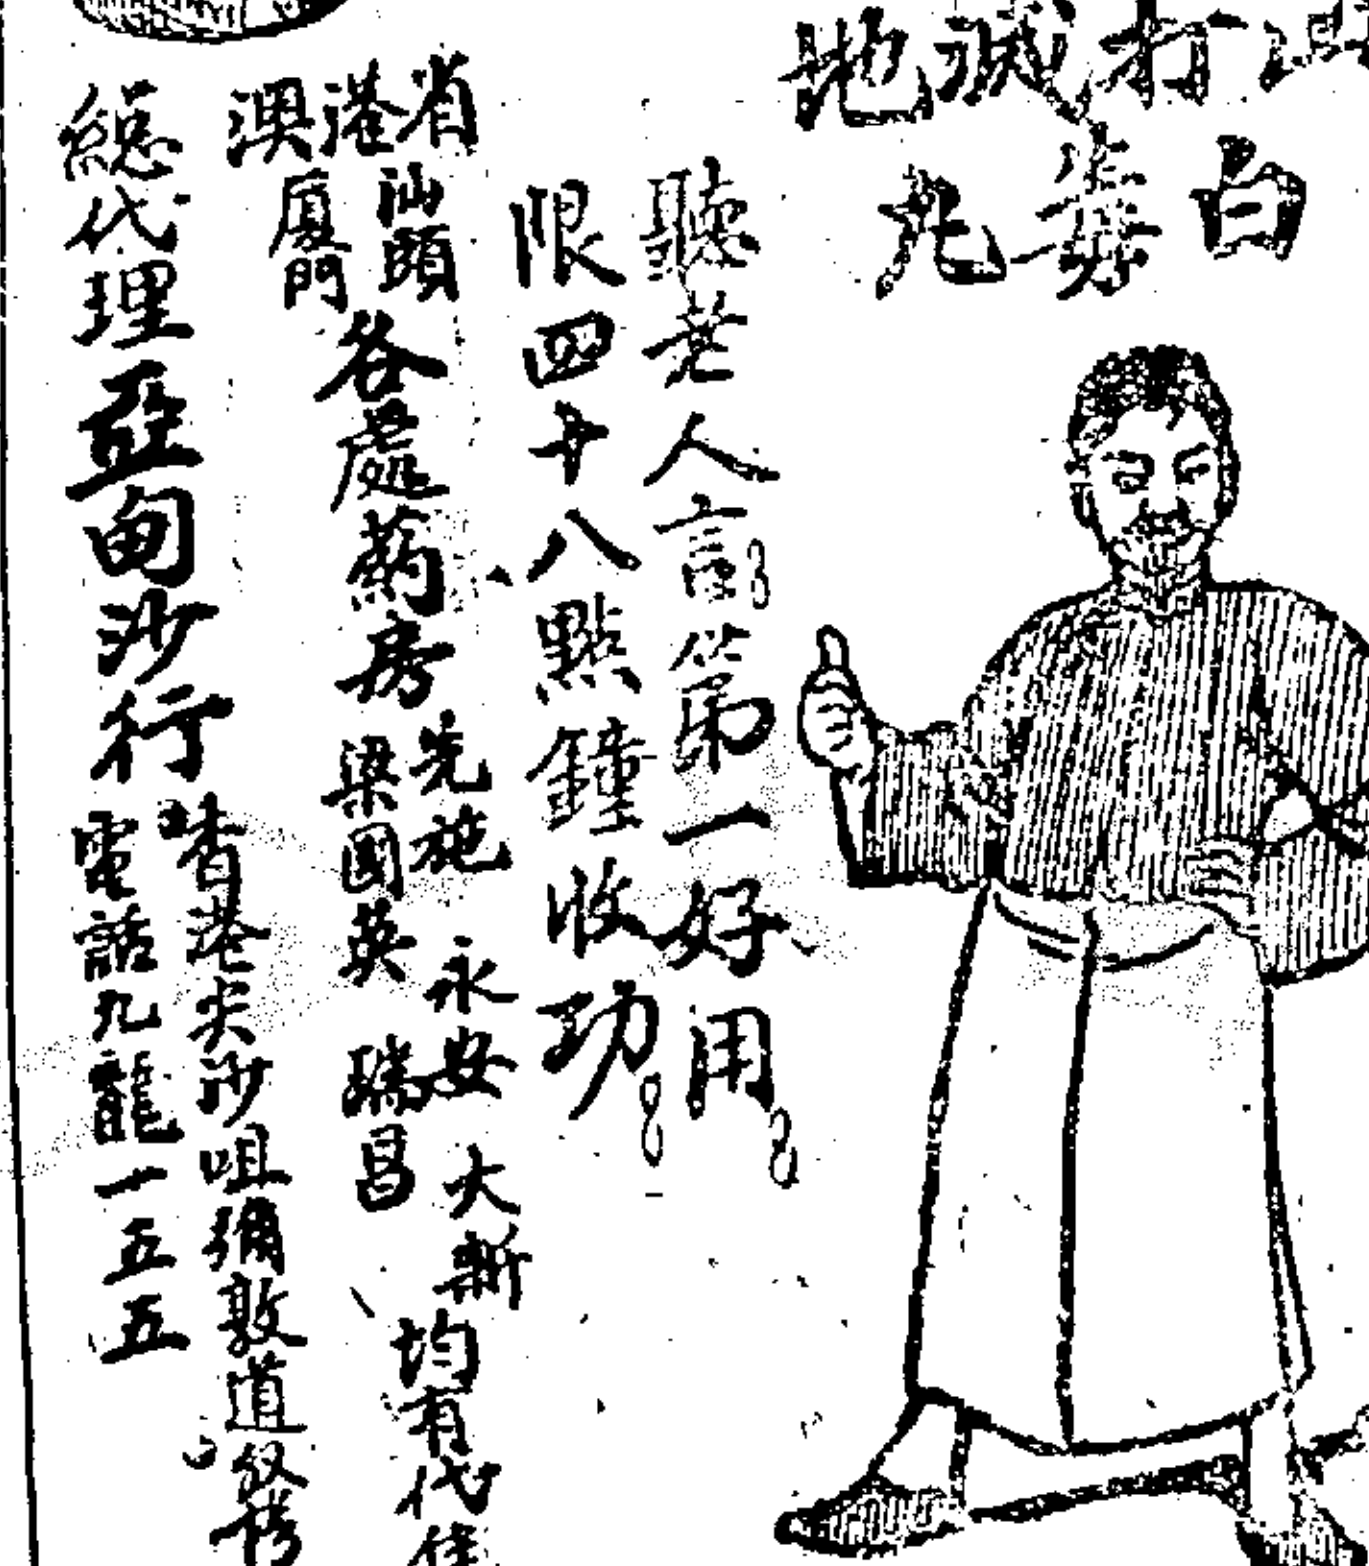 打滅地
白毒丸
聽老人言第一好用
限四十八點鐘收功
省港澳
汕頭
廈門
各處葯房
先施 永安 大新
梁國英 瑞昌
均有代售
總代理亞甸沙行
香港尖沙咀彌敦道
電話九龍一五五